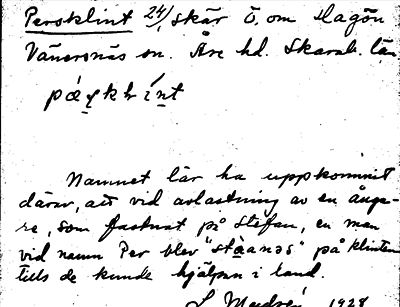 Persklint 24/, skär Ö. om Hagön
Vänersnäs sn. Åse hd. Skarab. län
Namnet lär ha uppkommit
därav, att vid avlastning av en ånga-
re, som fastnat på Stefan, en man
vid namn Per blev "stàanəs" på klinten
tills de kunde hjälpas i land.
1928